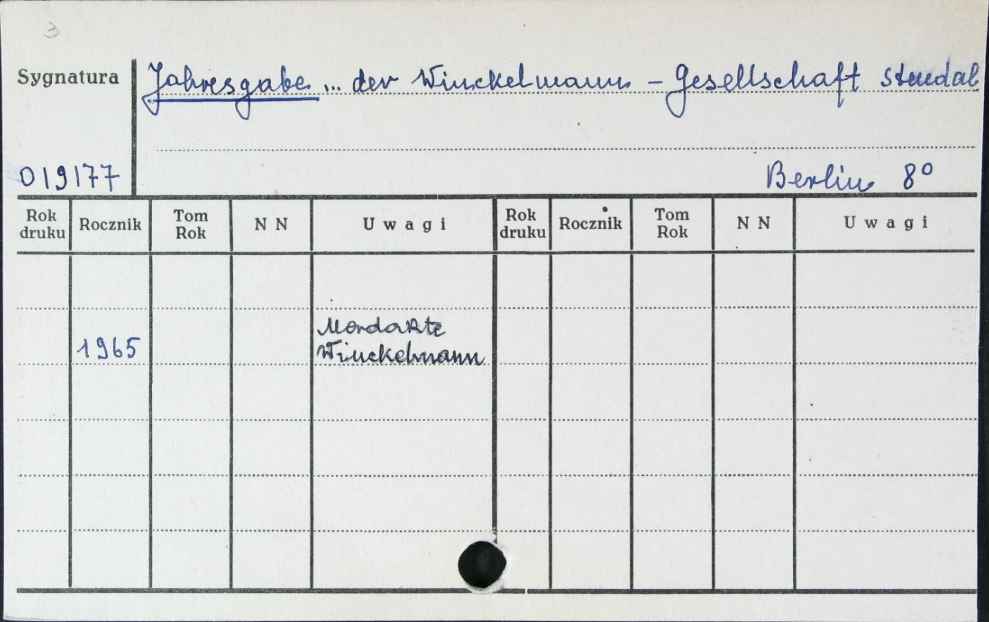 3
Sygnatura
Jahresgabe ... der Winckelmann - Gesellschaft Stendal
019177
Berlin 8º
Rok druku Rocznik Tom Rok N N Uwagi Rok druku Rocznik Tom Rok N N Uwagi
1965 Mordakte
Winckelmann